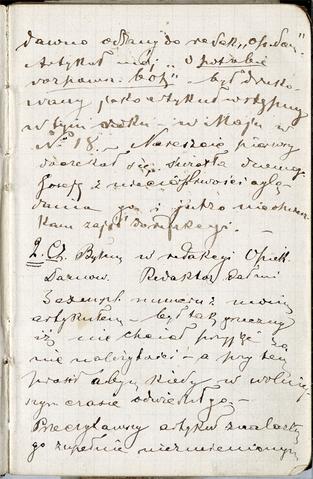 dawno oddany do redak. „Op. dom."
Artykuł mój „O potrzebie
" – był druko-
wany jako artykuł wstępny
w tym roku – w Maju w
№ 18. – Nareszcie pierwszy
doczekał się światła
z niecierpliwości oglą-
dania go i jutro nieomiesz-
kam zajść do redakcyi. –
2. Cz. Byłem w redakcyi Opiek.
Darmow. Redaktor dał mi
numeru z moim
artykułem – był tak grzeczny
iż nie chciał przyjąć za
nie należytości – a przy tem
prosił abym kiedy w wolniej-
szym czasie odwiedził go. –
Przeczytawszy artykuł znalazłem
go zupełnie niezmienionym